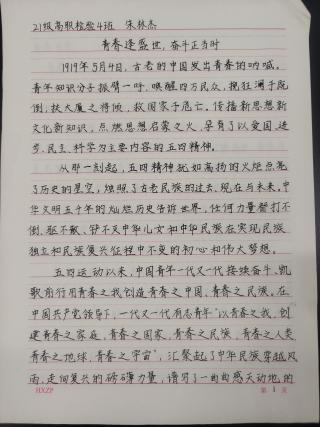 21级高职检验4班 朱林杰
青春逢盛世,奋斗正当时
1919年5月4日,古老的中国发出青春的呐喊。
青年知识分子振臂一呼,唤醒四万民众,挽狂澜于既
倒,扶大厦之将倾,救国家于危亡。传播新思想新
文化新知识,点燃思想启蒙之火,孕育了以爱国、进
步、民主、科学为主要内容的五四精神。
从那一刻起,五四精神犹如高扬的火炬点亮
了历史的星空,烛照了古老民族的过去、现在与未来。中
华文明五千年的灿烂历史告诉世界,任何力量都打不
倒、驱不散、锉不灭中华儿女和中华民族在实现民族
独立和民族复兴征程中不变的初心和伟大梦想。
五四运动以来,中国青年一代又一代接续奋斗、凯
歌前行用青春之我创造青春之中国、青春之民族。在
中国共产党领导下,一代又一代有志青年“以青春之我,创
建青春之家庭,青春之国家,青春之民族,青春之人类
青春之地球,青春之宇宙”,汇聚起了中华民族穿越风
雨、走向复兴的磅礴力量,谱写了一曲曲感天动地的
HXZP 第 1 页